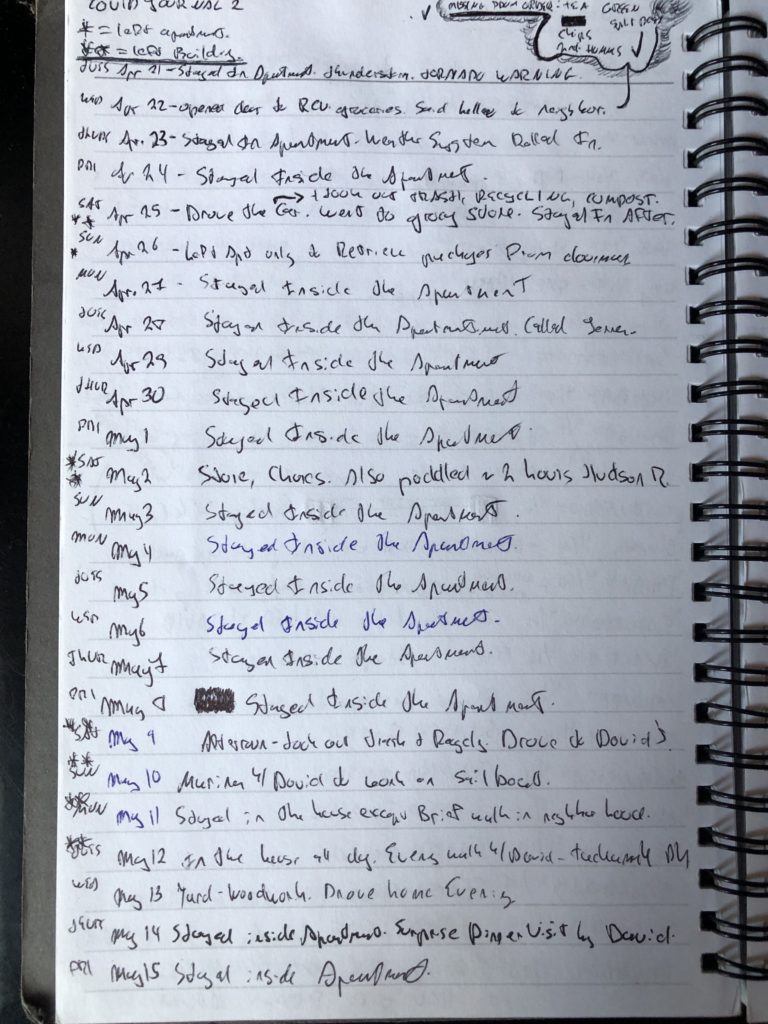 COVID JOURNAL 2
* = left apartment.
** = left Building.
✓ MISSING FROM ORDER: TEA GREEN
SPLIT PEAS
Chips
HUMMUS ✓
TUES Apr 21 - Stayed In Apartment. Thunderstorm. TORNADO WARNING.
WED Apr 22 - opened door to RCV groceries. Said hello to neighbor.
THUR Apr. 23 - Stayed In Apartment. Weather System Rolled In.
FRI Apr 24 - Stayed Inside the Apartment.
→ + took out TRASH, RECYCLING, COMPOST.
SAT ** Apr 25 - Drove the Car. Went to grocery store. Stayed In AFTER.
SUN * Apr 26 - Left Apt only to Retrieve packages From doorman
MON Apr. 27 - Stayed Inside the Apartment
TUES Apr 28 Stayed Inside the Apartment. Called
WED Apr 29 Stayed Inside the Apartment
THUR Apr 30 Stayed Inside the Apartment
FRI May 1 Stayed Inside the Apartment.
** SAT May 2 Store, Chores. Also paddled ~ 2 hours Hudson R.
SUN May 3 Stayed Inside the Apartment.
MON May 4 Stayed Inside the Apartment.
TUES May 5 Stayed Inside the Apartment.
WED May 6 Stayed Inside the Apartment.
THUR May 7 Stayed Inside the Apartment.
FRI May 8 Stayed Inside the Apartment.
** SAT May 9 Afternoon - took out trash & Recycls. Drove to David's.
** SUN May 10 Marina w/ David to work on Sailboat.
** MON May 11 Stayed in the house except Brief walk in neighborhood.
** TUES May 12 In the house all day. Evening walk w/ David -
WED May 13 Yard - woodwork. Drove home Evening
THUR May 14 Stayed inside Apartment. Surprise Dinner Visit by David.
FRI May 15 Stayed inside Apartment.